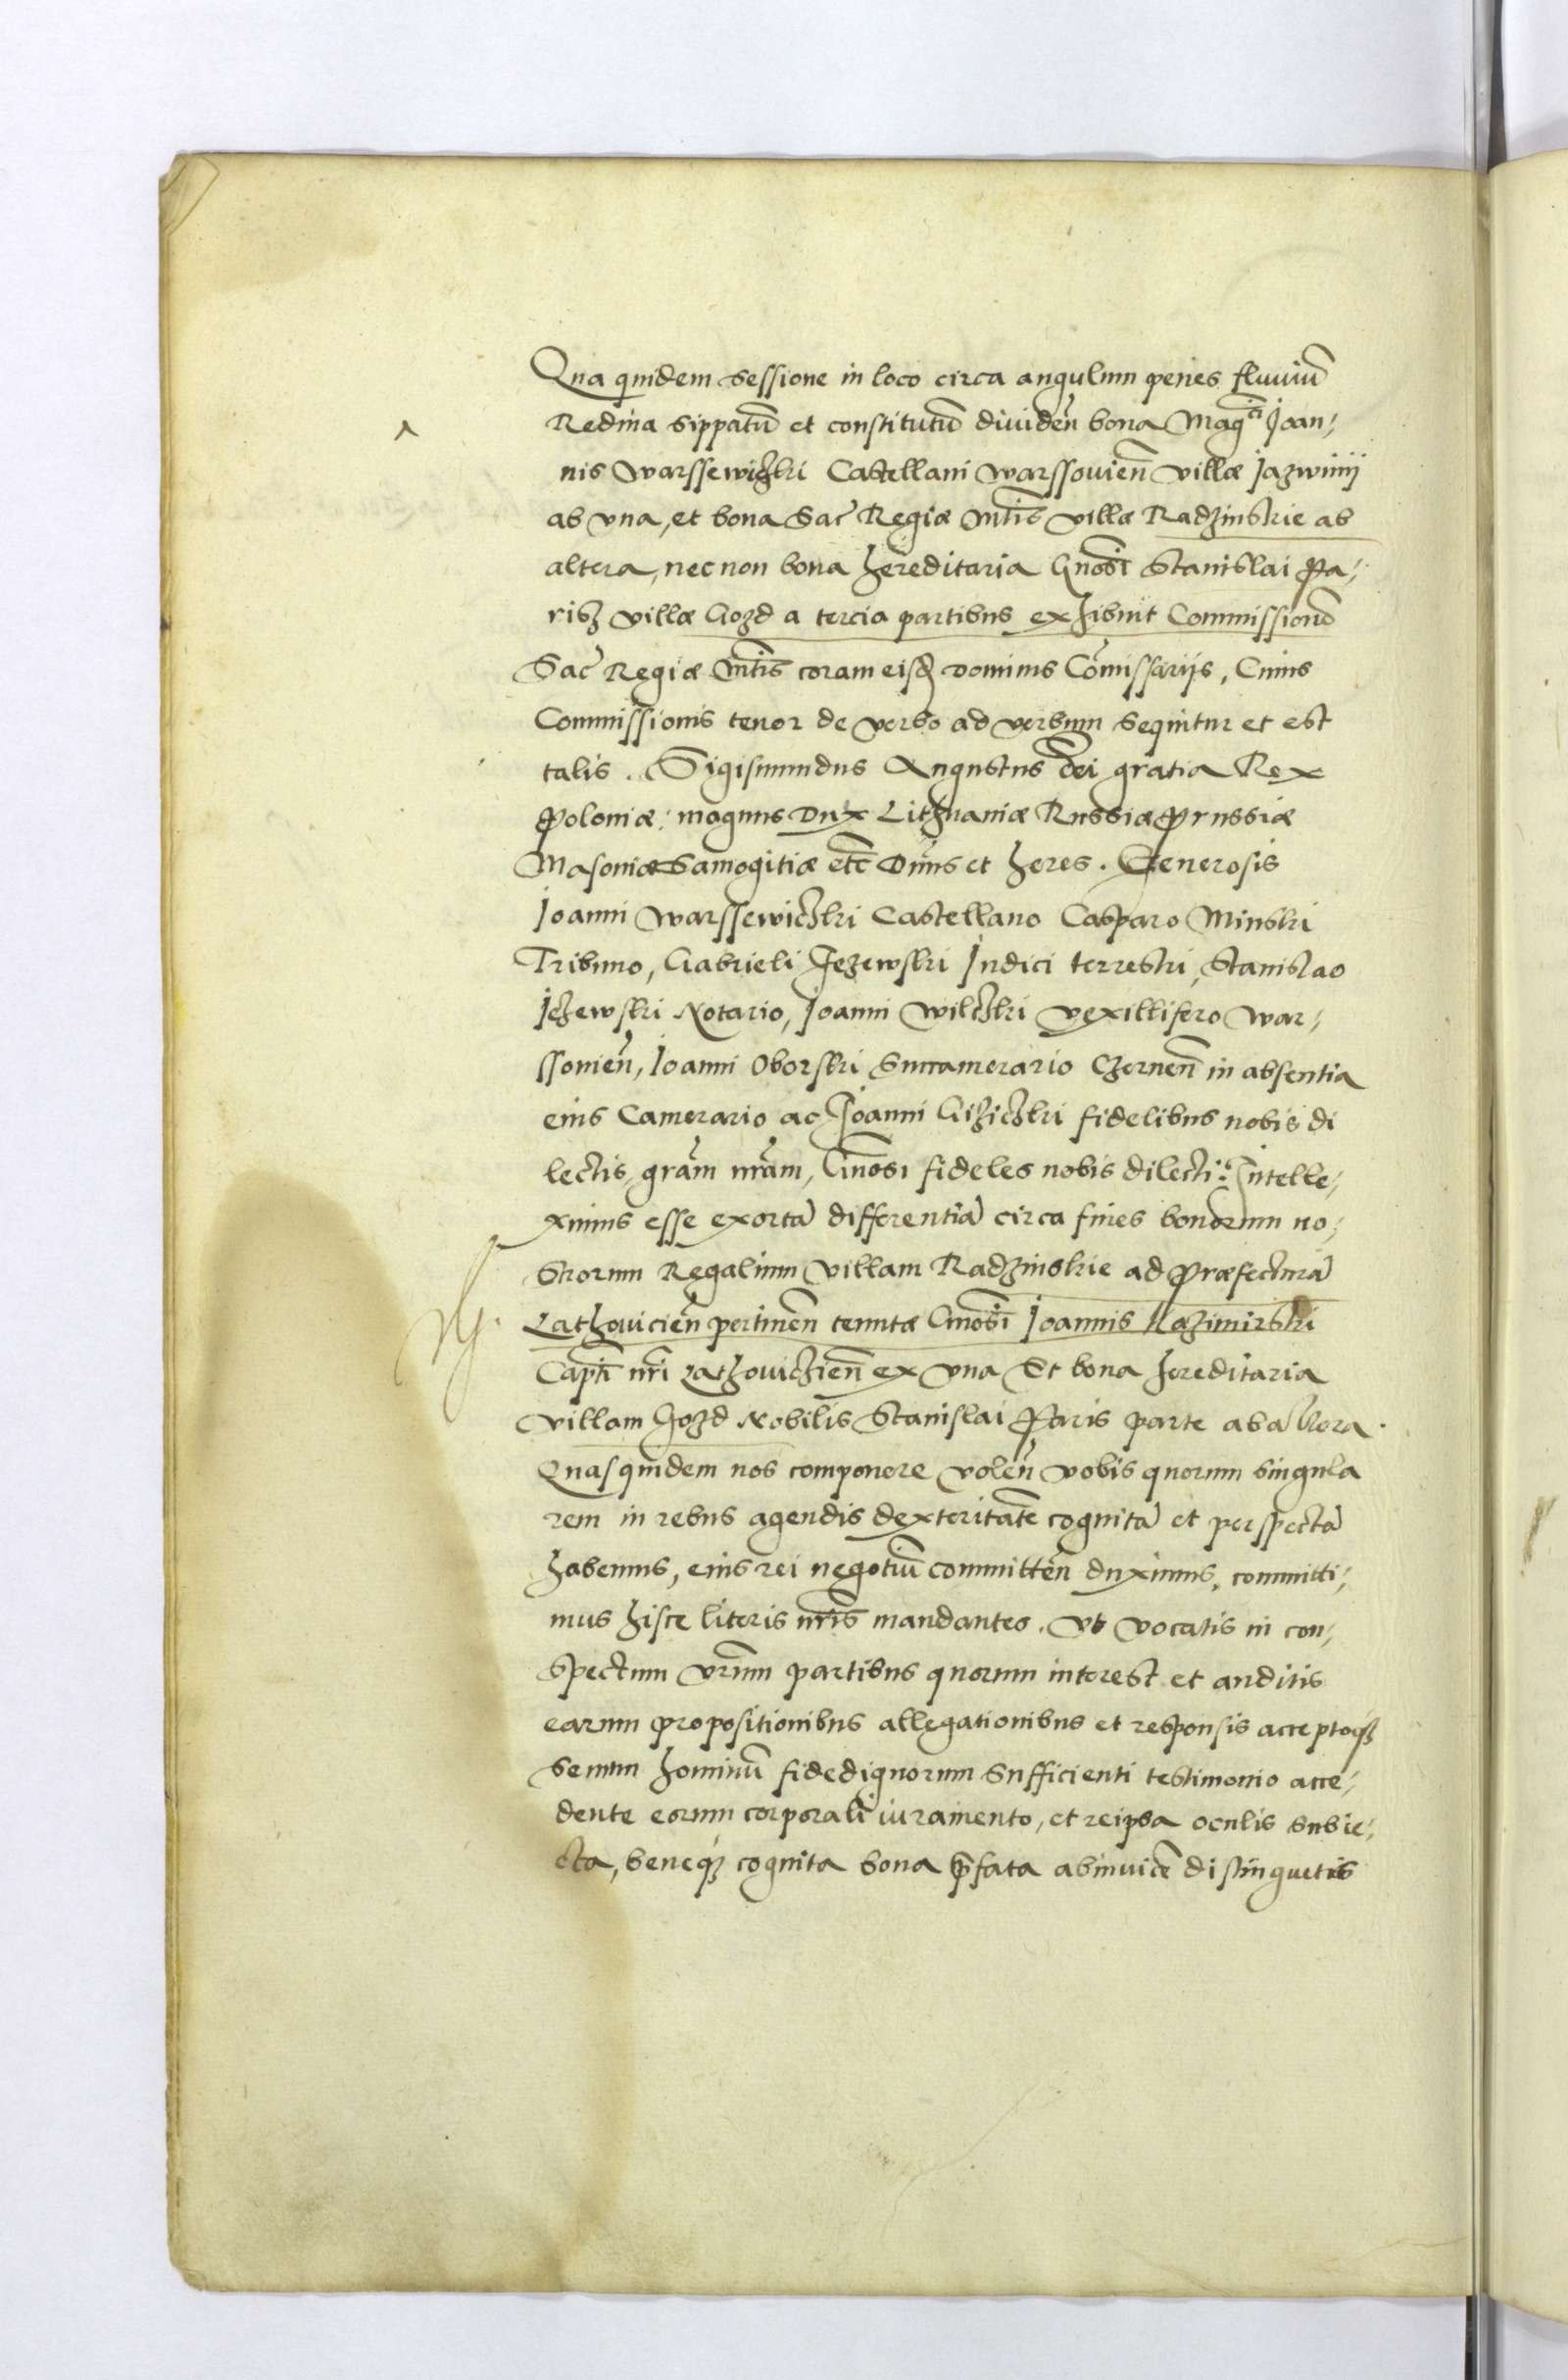 Qua quidem sessione in loco circa angulum penes fluuiū
Redina sippatū et constitutū diuideñ bona Mag^ci Joan⸗
nis Warssewiczki Castellani Warssouieñ villæ Jazwinij
ab vna, et bona Sac̄ Regiæ M̄tis villæ Radzinskie ab
altera, nec non bona hereditaria Gnosi Stanislai Pa⸗
risz villæ Gozd a tercia partibus exhibuit Commissionē
Sac̄ Regiæ M̄tis coram eisd̄ dominis Com̄issarijs, Cuius
Commissionis tenor de verbo ad verbum sequitur et est
talis. Sigismundus Augustus dei gratia Rex
Poloniæ: magnus Dux Lithuaniæ Russiæ Prussiæ
Masoniæ Samogitiæ etc̄ Dn̄us et heres. Generosis
Joanni Warssewiczki Castellano Casparo Minski
Tribuno, Gabrieli Jezewski Judici terrestri, Stanislao
Jezewski Notario, Joanni Wilczki vexillifero War⸗
ssouieñ, Joanni Oborski Succamerario Czerneñ in absentia
eius Camerario ac Joanni Giziczki fidelibus nobis di
lectis, grām nrām, Gnosi fideles nobis dilecti: Intelle⸗
ximus esse exortā differentiā circa fines bonorum no⸗
strorum Regalium villam Radzinskie ad Præfecturā
Lathouicieñ pertineñ tenutæ Gnosi Joannis Kazimirski
Capti nr̄i Lathouiczieñ ex vna Et bona hereditaria
villam Gozd Nobilis Stanislai Paris parte ab altera.
Quas quidem nos componere voleñ vobis quorum singula
rem in rebus agendis dexteritatē cognitā et perspectā
habemus, eius rei negotiū committeñ duximus, committi⸗
mus hisce literis nr̄is mandantes. vt vocatis in con⸗
spectum vr̄um partibus quorum interest et auditis
earum propositionibus allegationibus et responsis acceptoq₃
senum hominū fidedignorum sufficienti testimonio acce⸗
dente eorum corporali iuramento, et reipsa oculis subie⸗
cta, beneq₃ cognita bona p̄fata abinuicē distinguetis